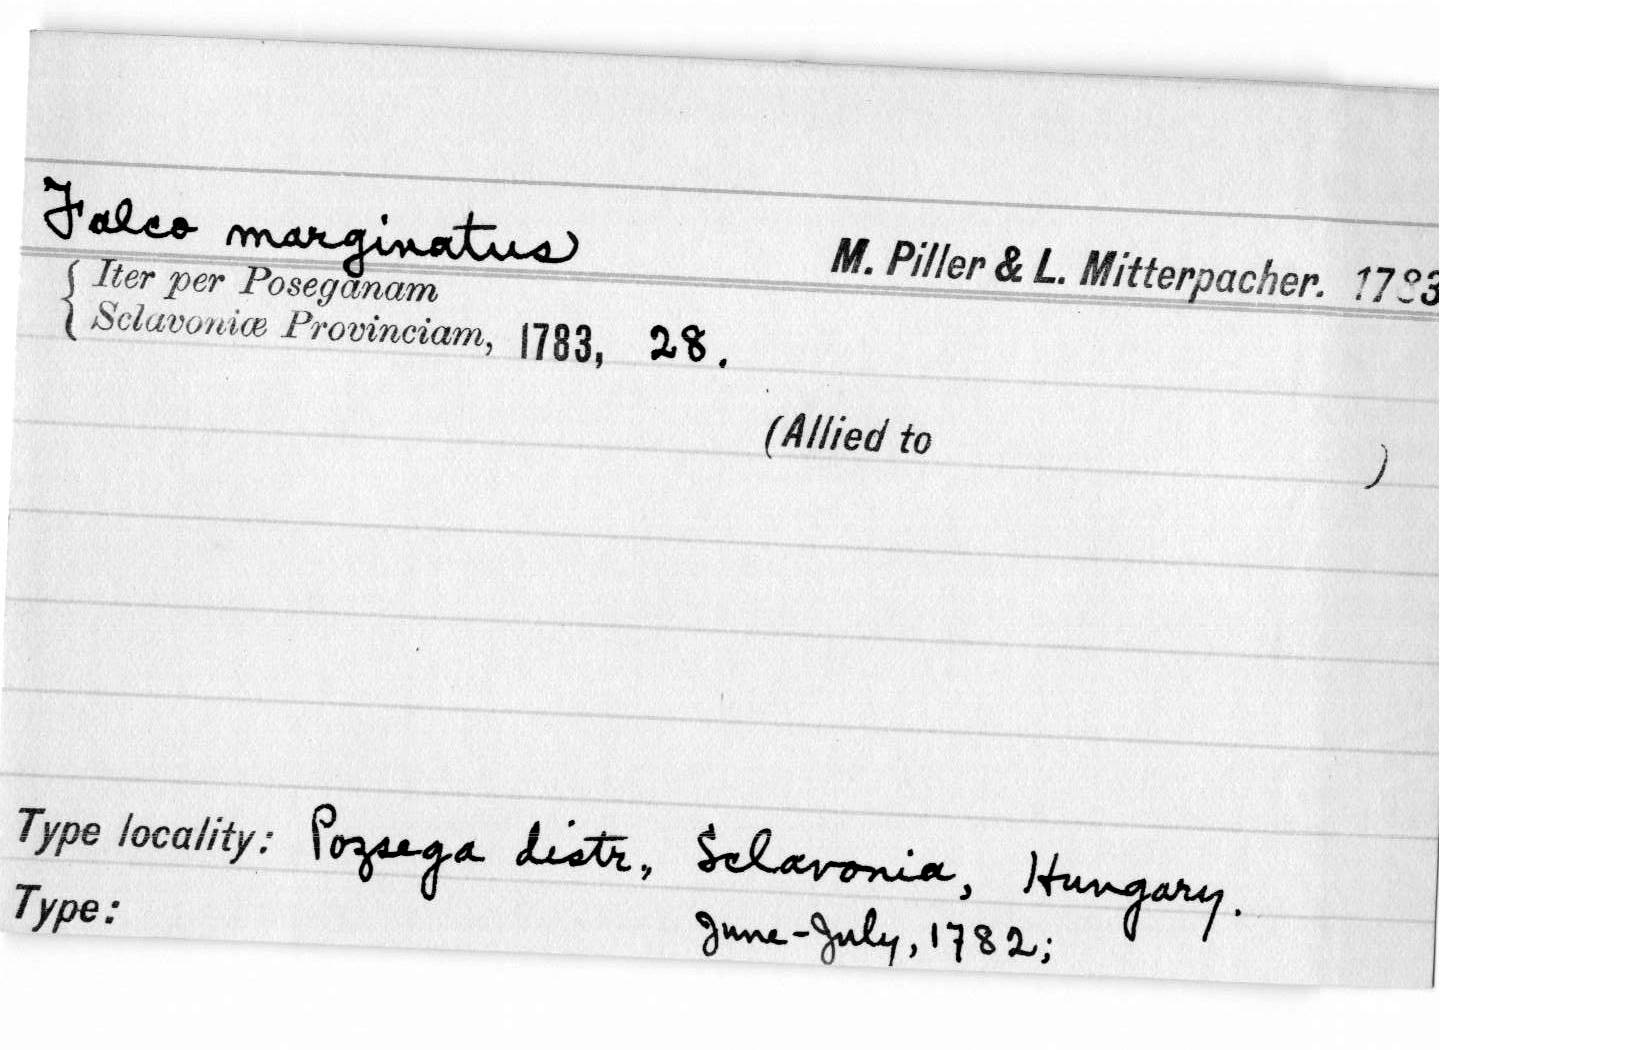 Falco marginatus M. Piller & L. Mitterpacher. 1783
{ Iter per Poseganam
Sclavoniæ Provinciam, 1783, 28.
(Allied to )
Type locality: Pozsega distr., Sclavonia, Hungary.
Type: June-July, 1782;